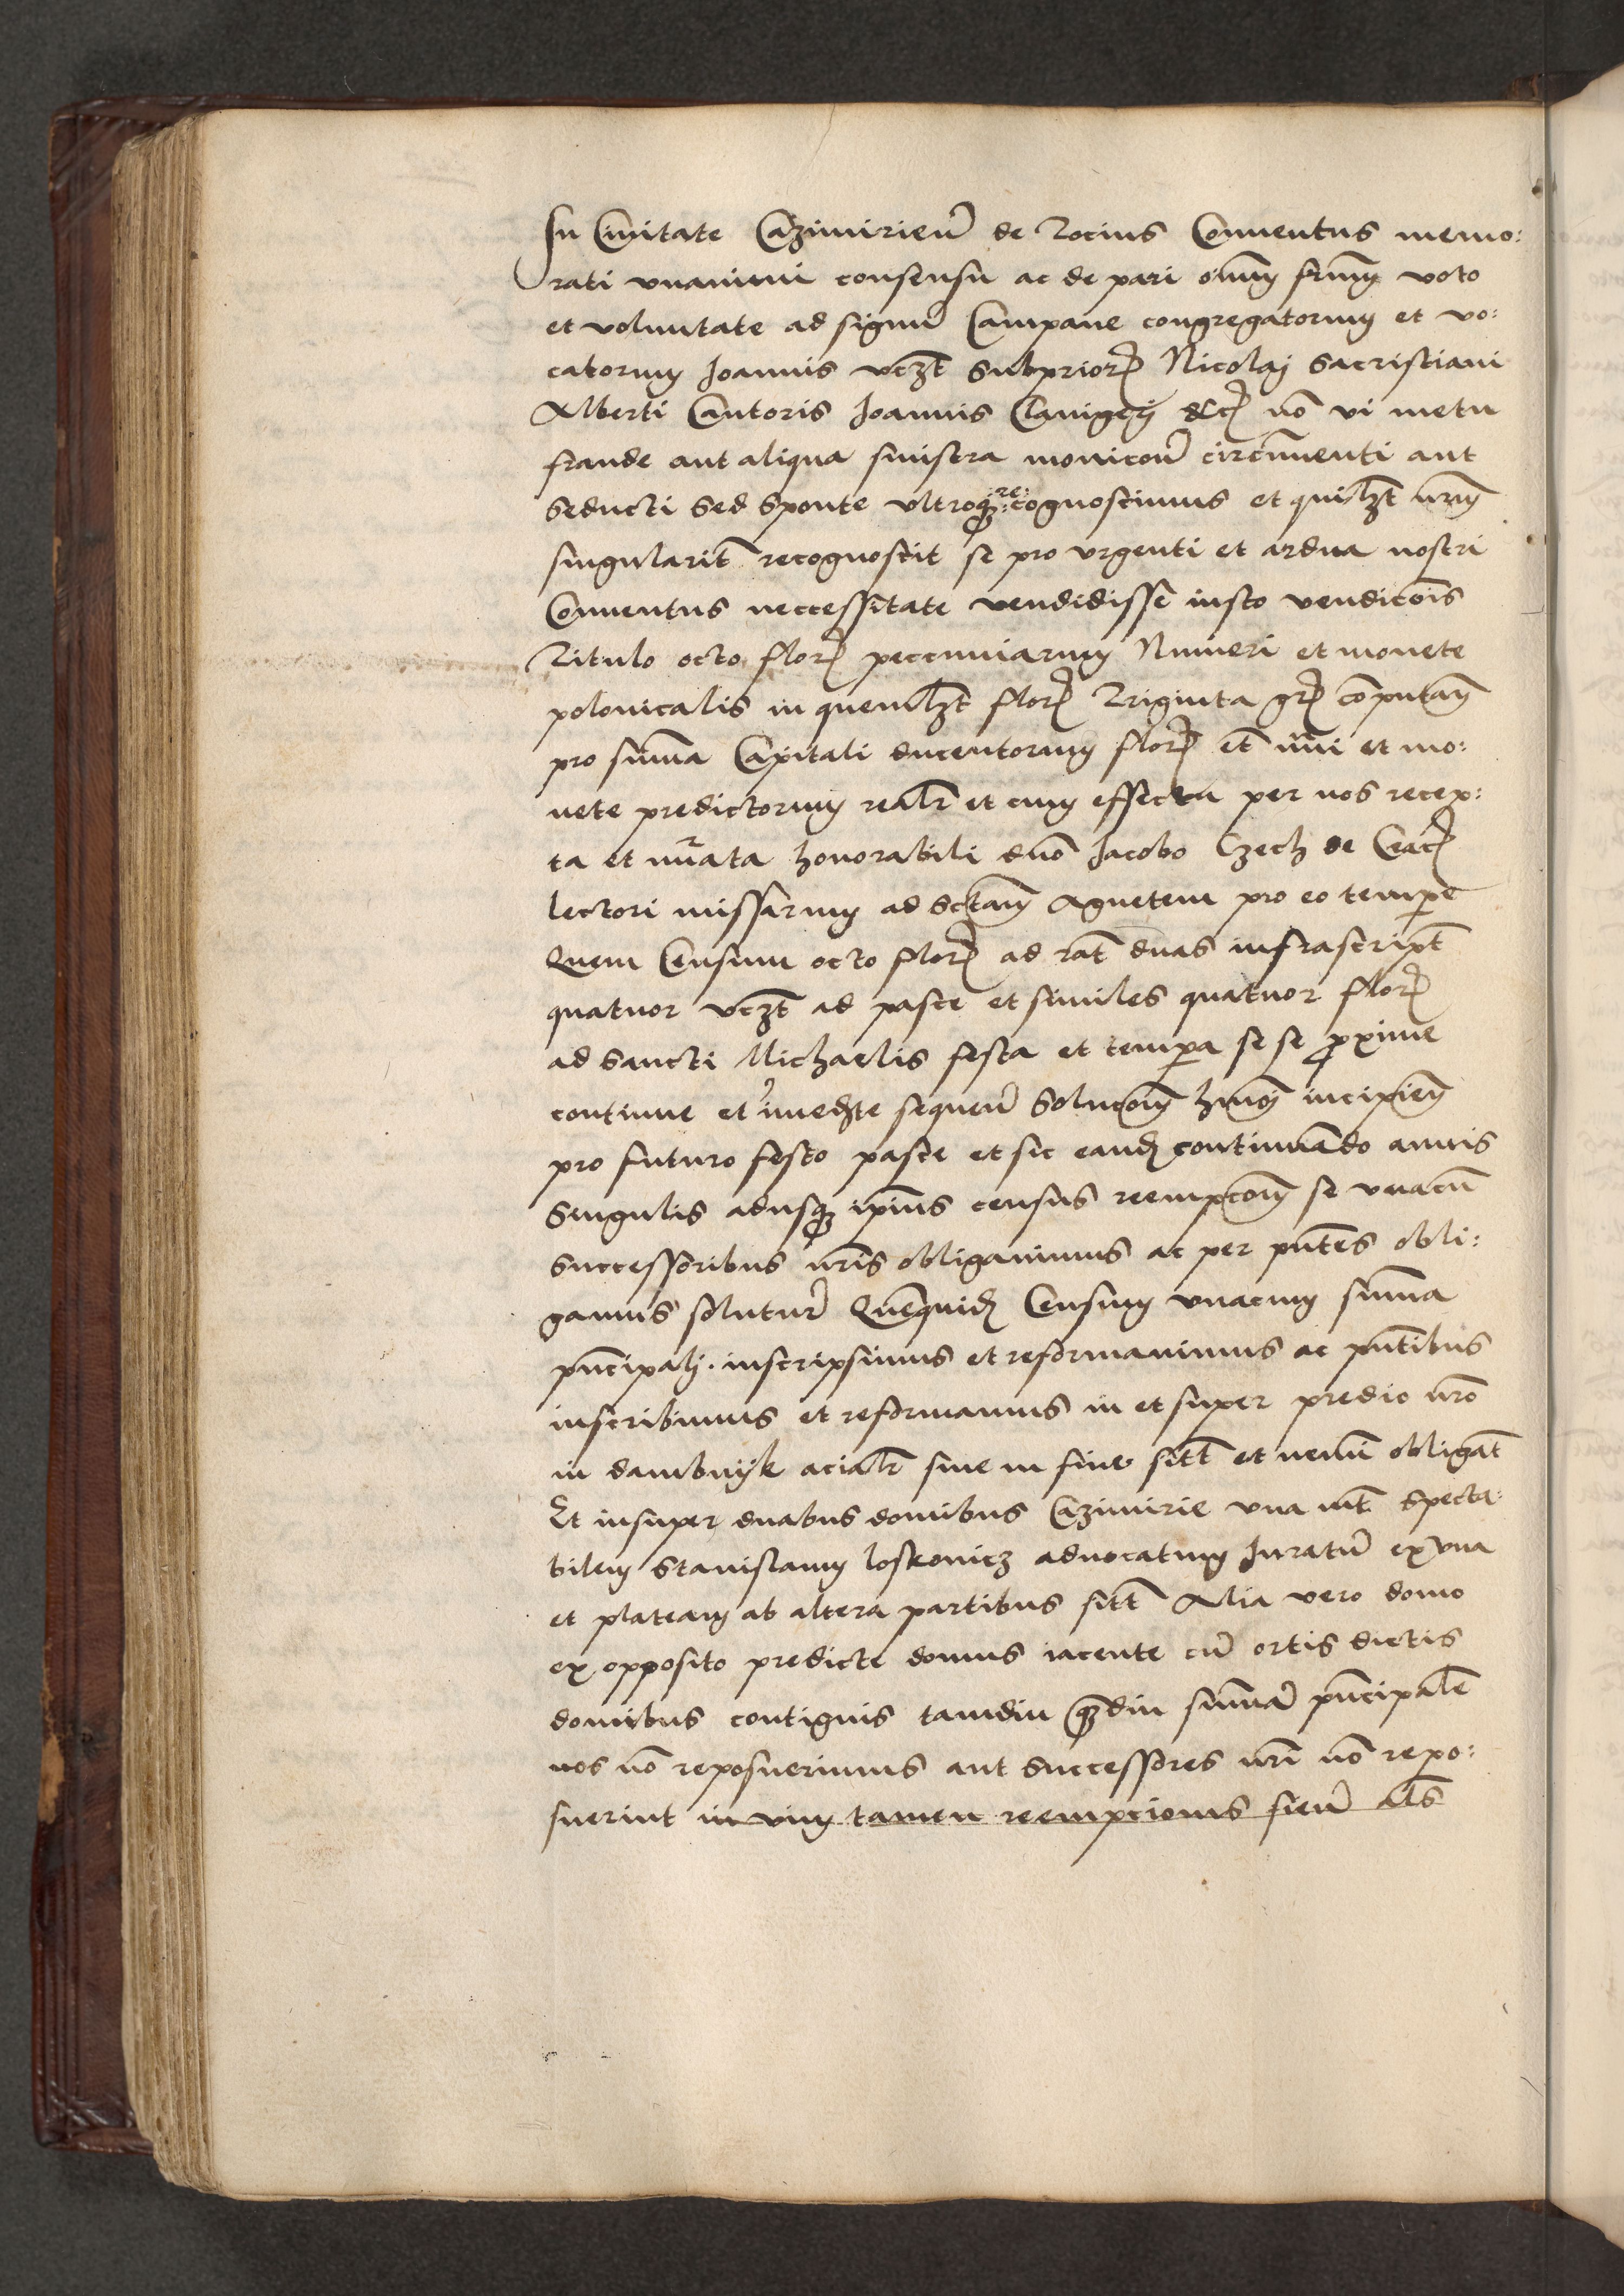 In Ciuitate Cazimirien̄ de Tocius Conuentus memo:
rati vnanimi consensu ac de pari om̄m fr̄m voto
et voluntate ad signū Campane congregatorum et vo:
catorum Joannis vcz̄t Subprior̄ Nicolaj Sacristiani
Alberti Cantoris Joannis Clauigerj &c̄ nō vi metu
fraude aut aliqua sinistra monicōn̄ circūmuenti aut
seducti sed sponte vltroq; re:cognoscimus et quilib̄t nr̄m
singularit̄ recognoscit se pro vrgenti et ardua nostri
Conuentus neccessitate vendidisse iusto vendicōis
Titulo octo flor̄ peccuniarum Numeri et monete
polonicalis in quemlib̄t flor̄ Triginta gr̄ cōputan̄
pro sum̄a Capitali ducentorum flor̄ et̄ nr̄i et mo:
nete predictorum realr̄ et cum effectu per nos recep:
ta et nūrata honorabili dn̄o Jacobo Czech de Crac̄
lectori missarum ad Sctam̄ Agnetem pro eo temp̄e
Quem Censum octo flor̄ ad rat̄ duas infrascript̄
quatuor vcz̄t ad pasce et similes quatuor flor̄
ad Sancti Michaelis festa et temp̄a se se p̄xime
continue et im̄ediate sequen̄ Solucōm̄ hm̄oi incipien̄
pro futuro festo pasce et sic eand̄ continuando annis
Singulis adusq; ip̄ius census reempcōm̄ se vnacū
Successoribus nr̄is obligauimus ac per pn̄tes obli:
gamus solutur̄ Quēquid̄ Censum vnacum sum̄a
pn̄cipalj inscripsimus et reformauimus ac pn̄tibus
inscribimus et reformamus in et super predio nr̄o
in dambnijk acialr̄ siue in fine sitt̄ et nemī obligat̄
Et insuper duabus domibus Cazimirie vna int̄ specta:
bilem Stanislaum loskouicz aduocatum Juratū ex vna
et plateam ab altera partibus sitt̄ Alia vero domo
ex opposito predicte domus iacente cū ortis dictis
domibus contiguis tamdiu q̄diu sum̄ā pn̄cipalē
nos nō reposuerimus aut successores nr̄i nō repo:
suerint in vim tamen reempcionis sien̄ als̄